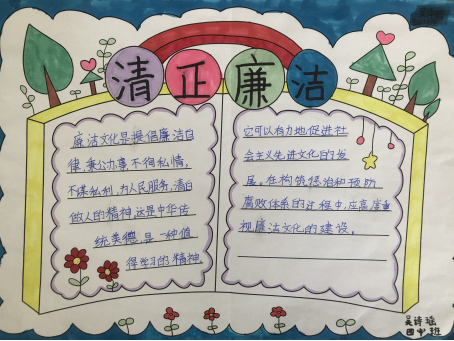 清正廉洁
廉洁文化是提倡廉洁自
律，秉公办事，不徇私情，
不谋私利，为人民服务，清白
做人的精神，这是中华传
统美德，是一种值
得学习的精神
它可以有力地促进社
会主义先进文化的发
展。在构筑惩治和预防
腐败体系的过程中，应高度重
视廉洁文化的建设。
吴诗瑶
四中班